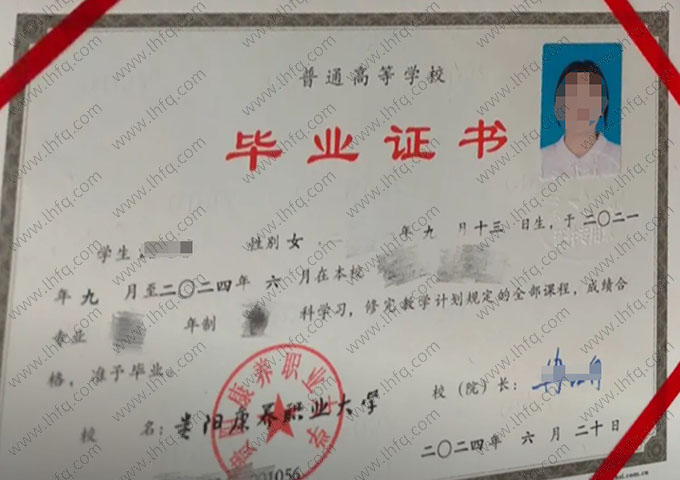 普通高等学校
毕业证书
学生 性别 女 年 九 月 十三 日生，于 二〇二一
年 九 月至 二〇二四 年 六 月在本校
专业 年制 科学习，修完教学计划规定的全部课程，成绩合
格，准予毕业。
校 名： 贵阳康养职业大学 校（院）长：
二〇二四年 六 月 二十日
康养职业大
201056
www.lhfq.com